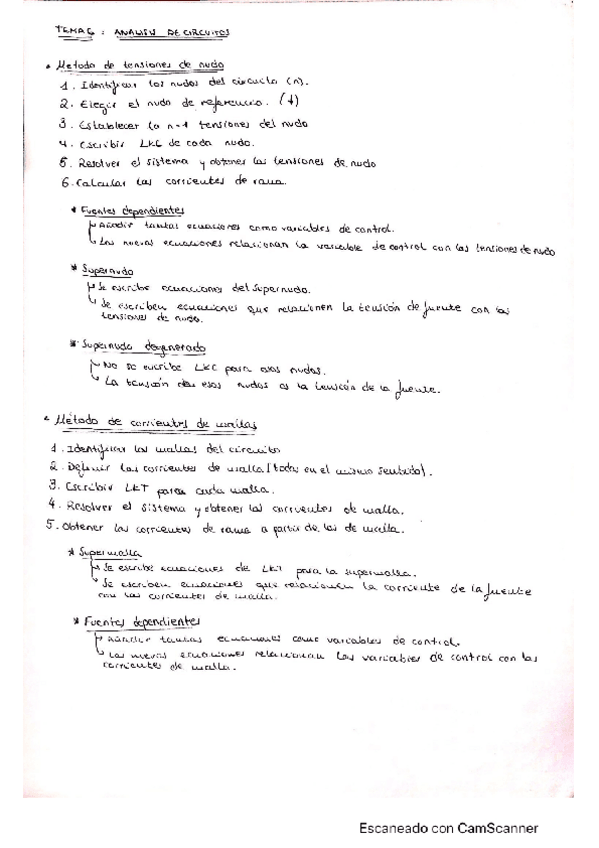 TEMA 6: ANALISIS DE CIRCUITOS
• Metodo de tensiones de nudo
1. Identificar los nudos del circuito (n).
2. Elegir el nudo de referencia. (⏚)
3. Establecer la n-1 tensiones del nudo
4. Escribir LKC de cada nudo.
5. Resolver el sistema y obtener las tensiones de nudo
6. Calcular las corrientes de rama.
* Fuentes dependientes
↳ Añadir tantas ecuaciones como variables de control.
↳ Las nuevas ecuaciones relacionan la variable de control con las tensiones de nudo
* Supernudo
↳ Se escribe ecuaciones del supernudo.
↳ Se escriben ecuaciones que relacionen la tensión de fuente con las
tensiones de nudo.
* Supernudo degenerado
↳ No se escribe LKC para esos nudos.
↳ La tensión de esos nudos es la tensión de la fuente.
• Método de corrientes de mallas
1. Identificar las mallas del circuito
2. Definir las corrientes de malla (todas en el mismo sentido).
3. Escribir LKT para cada malla.
4. Resolver el sistema y obtener las corrientes de malla.
5. Obtener las corrientes de rama a partir de las de malla.
* Supermalla
↳ Se escribe ecuaciones de LKT para la supermalla.
↳ Se escriben ecuaciones que relacionen la corriente de la fuente
con las corrientes de malla.
* Fuentes dependientes
↳ Añadir tantas ecuaciones como variables de control.
↳ Las nuevas ecuaciones relacionan las variables de control con las
corrientes de malla.
Escaneado con CamScanner